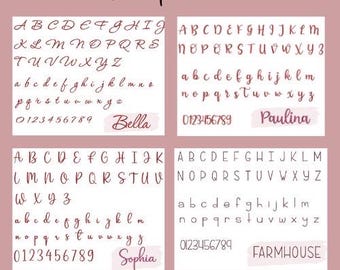 A B C D E F G H I J
K L M N O P Q R S T
U V W X Y Z
a b c d e f g h i j k l m n o
p q r s t u v w x y z
0123456789
Bella
A B C D E F G H I J K L M
N O P Q R S T U V W X Y Z
a b c d e f g h i j k l m
n o p q r s t u v w x y z
0123456789
Paulina
A B C D E F G H I J K
L M N O P Q R S T U V
W X Y Z
a b c d e f g h i j k l m
n o p q r s t u v w x y z
0123456789
Sophia
A B C D E F G H I J K L M
N O P Q R S T U V W X Y Z
a b c d e f g h i j k l m
n o p q r s t u v w x y z
0123456789
FARMHOUSE